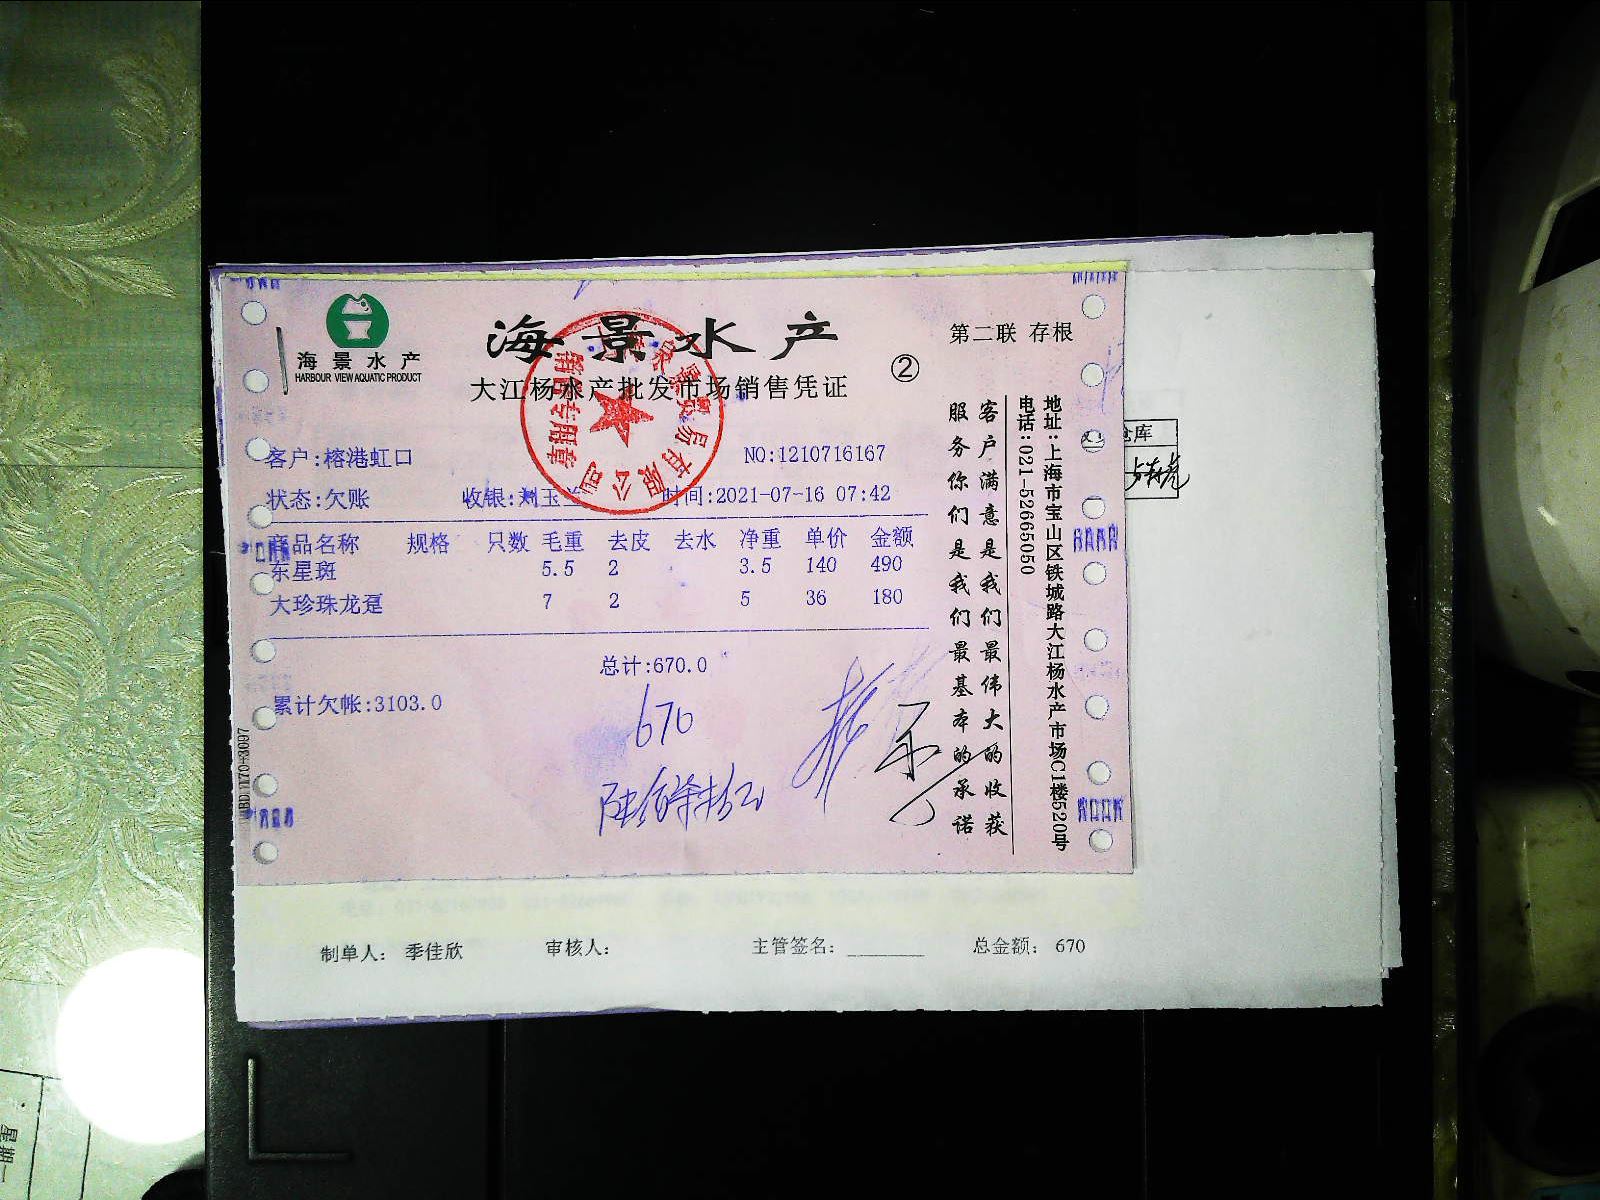 海景水产
HARBOUR VIEW AQUATIC PRODUCT
海景水产
大江杨水产批发市场销售凭证
②
第二联 存根
客户:榕港虹口
NO:1210716167
状态:欠账 收银:刘玉 时间:2021-07-16 07:42
商品名称 规格 只数 毛重 去皮 去水 净重 单价 金额
东星斑 5.5 2 3.5 140 490
大珍珠龙趸 7 2 5 36 180
总计:670.0
累计欠帐:3103.0
670
客户满意是我们最伟大的收获
服务你们是我们最基本的承诺
地址:上海市宝山区铁城路大江杨水产市场C1楼520号
电话:021-52665050
销售专用章
贸易有限公司
仓库
制单人: 季佳欣 审核人: 主管签名: 总金额: 670
星期